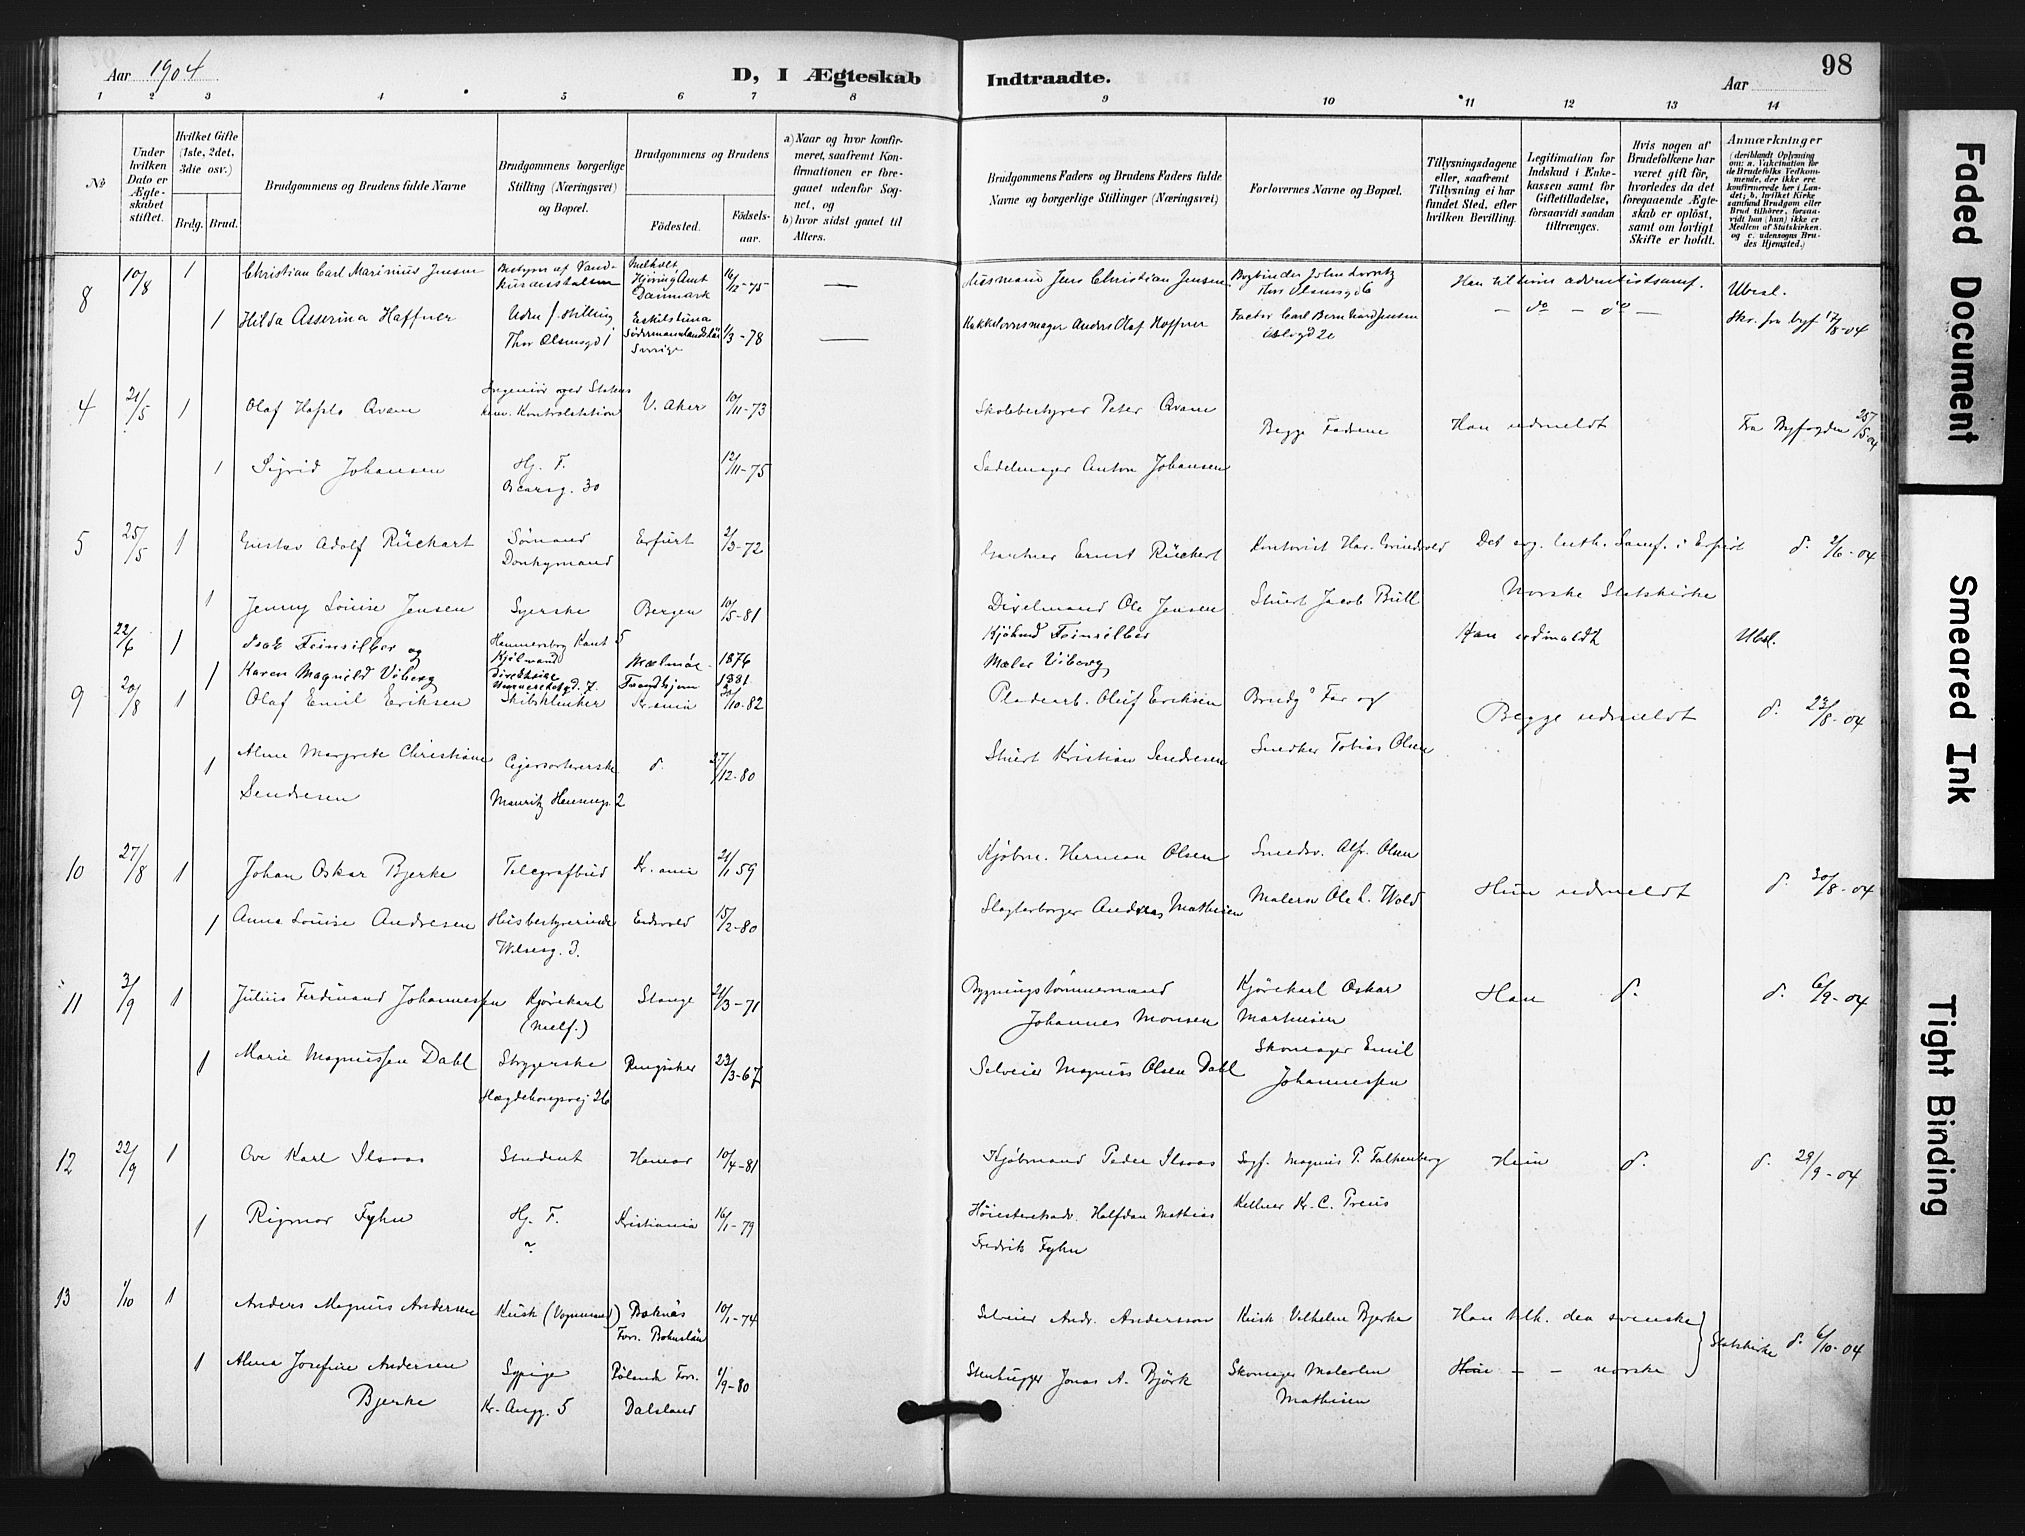 Aar 1904
D, I Ægteskab
Indtraadte.
98
Aar
1 2 3 4 5 6 7 8 9 10 11 12 13 14
No
Under hvilken Dato er Ægteskabet stiftet.
Hvilket Gifte (1ste, 2det, 3die osv.)
Brdg. Brud.
Brudgommens og Brudens fulde Navne
Brudgommens borgerlige Stilling (Næringsvei) og Bopæl.
Brudgommens og Brudens
Fødested.
Fødselsaar.
a) Naar og hvor konfirmeret, saafremt Konfirmationen er foregaaet udenfor Sognet, og
b) hvor sidst gaaet til Alters.
Brudgommens Faders og Brudens Faders fulde Navne og borgerlige Stillinger (Næringsvei)
Forlovernes Navne og Bopæl.
Tillysningsdagene eller, saafremt Tillysning ei har fundet Sted, efter hvilken Bevilling.
Legitimation for Indskud i Enkekassen samt for Giftetilladelse, forsaavidt saadan tiltrænges.
Hvis nogen af Brudefolkene har været gift før, hvorledes da det foregaaende Ægteskab er opløst, samt om lovligt Skifte er holdt.
Anmærkninger
(deriblandt Oplysning om: a. Vakcination for de Brudefolks Vedkommende, der ikke ere konfirmerede her i Landet; b. hvilket Kirkesamfund Brudgom eller Brud tilhører, forsaavidt han (hun) ikke er Medlem af Statskirken. og c. udensogns Brudes Hjemsted.)
8 10/8 1 Christian Carl Marinius Jensen Bestyrer af Melholt Hjöring Amt Danmark 16/12-75 — Husmand Jens Christian Jensen Bogbinder Han tilhører adventistsamf. Ubesl.
1 Hilda Asserina Haffner Uden f. stilling Thor Olsensgd 1 Eskilstuna Södermannlandslän Sverige 1/3-78 — Kakkelovnsmager Anders Olaf Haffner Faktor Carl Bernhard Jensen — do — do — Skr. fra byf 17/8-04
4 21/5 1 Olaf Qvam Ingeniør ved Statens kem. Kontrolstation V. Aker 10/11-73 Skolebestyrer Peter Qvam Begge Fædrene Han udmeldt Fra Byfogden 25/5 04
1 Sigrid Johansen Hj. F. Oscarsg. 30 12/11-75 Sadelmager Anton Johansen
5 25/5 1 Gustav Adolf Rückart Sømand Donkymand Erfurt 2/3-72 Gartner Ernst Rückert Kontorist Har. Grindvold Det evg. luth. Samf. i Erfurt d. 2/6-04
1 Jenny Louise Jensen Syerske Bergen 10/5-81 Dixelmand Ole Jensen Stuert Jacob Bull Norske Statskirke
22/6 1 Isak Feinsilber og Hammersborg Kjøbmand Malmøe 1876 Kjøbmd Feinsilber Han udmeldt Ubesl.
1 Karen Magnhild Viberg Direktrise Universitetsgd. 7. Trondhjem 1881 Maler Viberg
9 20/8 1 Olaf Emil Eriksen Skibsklinker Kr.ania 30/10-82 Pladearb. Oluf Eriksen Brudg' Far og Begge udmeldt d. 23/8-04
1 Alma Margrete Christiane Sendresen Cigarsortererske Mauritz Hansensg. 2 d. 27/12-80 Stuert Kristian Sendresen Smedker Tobias Olsen
10 27/8 1 Johan Oskar Bjerke Telegrafbud Kr.ania 21/1 59 Kjøbm. Herman Olsen Smedsv. Alf. Olsen Hun udmeldt d. 30/8-04
1 Anna Louise Andresen Husbestyrerinde Wilsesg. 3. Eidsvold 15/2-80 Slagterborger Andreas Mathisen Malersv Ole L. Wold
11 3/9 1 Julius Ferdinand Johannessen Kjørekarl Stange 21/3-71 Bygningstømmermand Johannes Monsen Kjørekarl Oskar Martinsen Han d. d. 6/9-04
1 Marie Magnussen Dahl Strygerske Hægdehougsvej 26 Ringsaker 23/3-67 Selveier Magnus Olsen Dahl Skomager Emil Johannessen
12 22/9 1 Ove Karl Ilsaas Student Hamar 10/4-81 Kjøbmand Peder Ilsaas Sagf. Magnus P. Falkenberg Hun d. d. 29/9-04
1 Rigmor Fyhn Hj. F. Kristiania 16/1-79 Høiesteretsadv. Halfdan Mathias Fredrik Fyhn Kellner Kr. C. Preus
13 1/10 1 Anders Magnus Andersen Kusk (Vognmand) Boknäs Fors. Bohuslän 10/1-74 Selveier Andr. Andersson Kusk Vilhelm Bjerke Han tilh. den svenske } Statskirke d. 6/10-04
1 Alma Josefine Andersen Bjerke Sypige Kr. Augg. 5 Dalsland 1/9-80 Stenhugger Jonas A. Björk Skomager Malcolm Mathisen Hun - - norske
Faded Document
Smeared Ink
Tight Binding